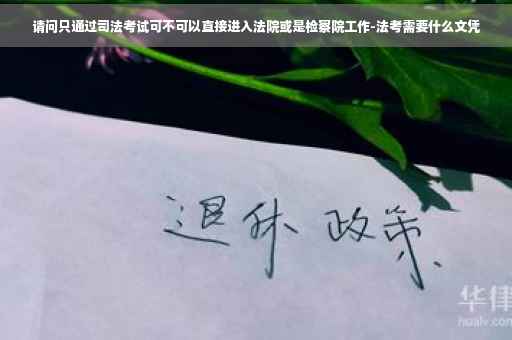 请问只通过司法考试可不可以直接进入法院或是检察院工作-法考需要什么文凭
退休 政策
华律
hualv.com